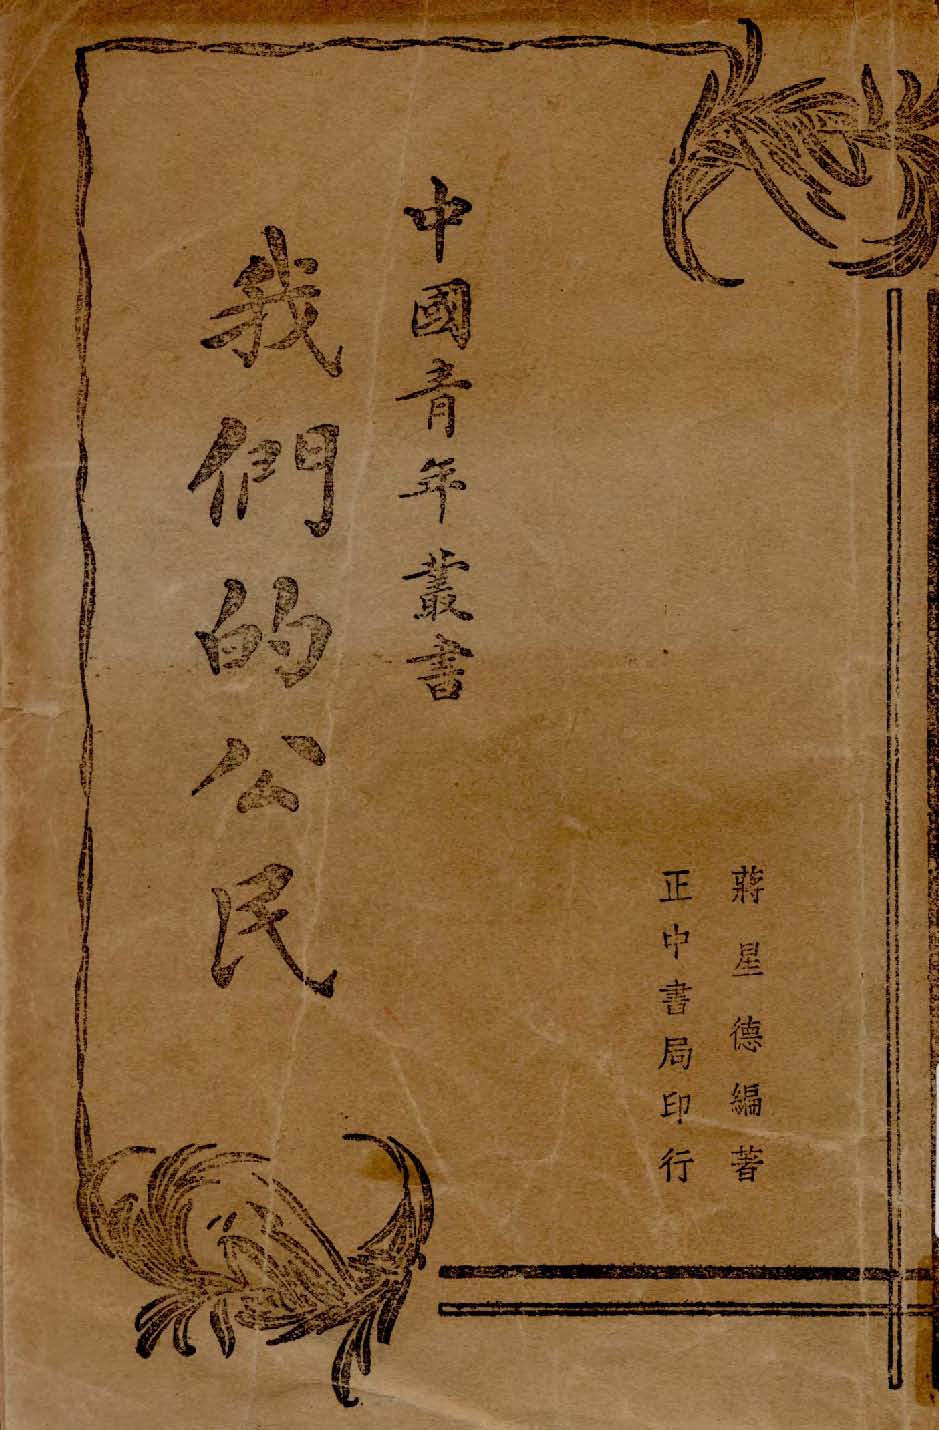 蔣星德編著
正中書局印行
中國青年叢書
我們的公民